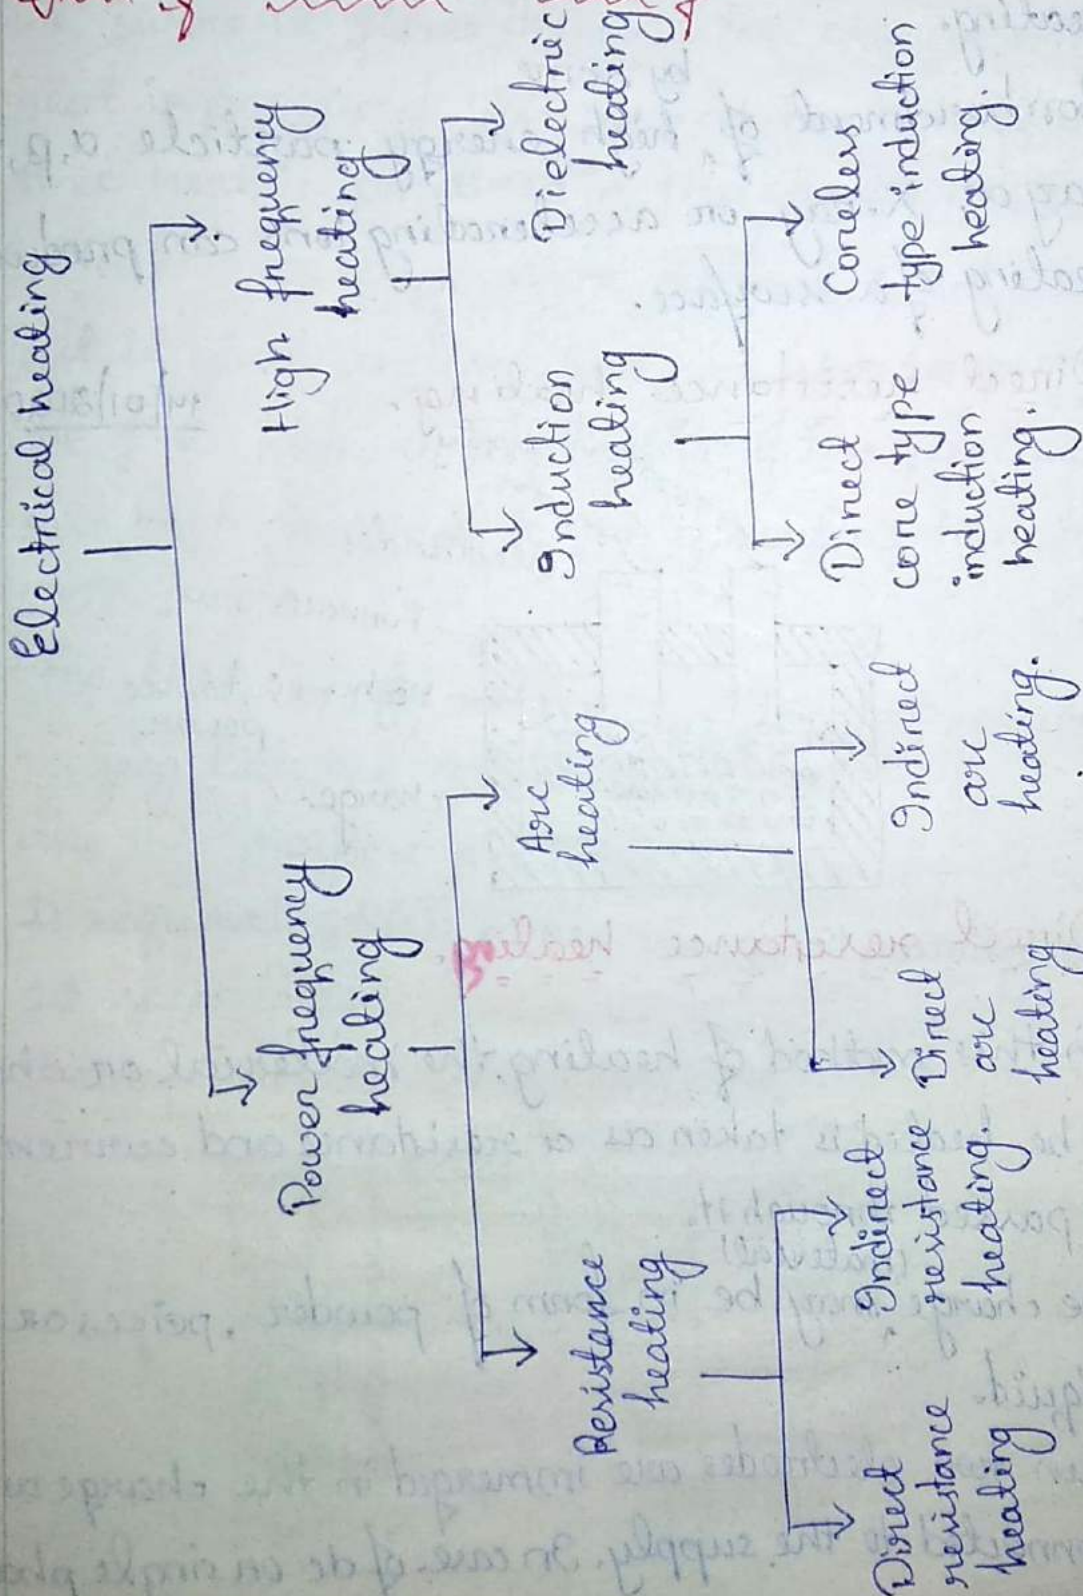 Electrical heating
Power frequency
heating
High frequency
heating
Resistance
heating
Arc
heating.
Induction
heating
Dielectric
heating
Direct
resistance
heating
Indirect
resistance
heating.
Direct
arc
heating
Indirect
arc
heating.
Direct
core type
induction
heating.
Coreless
type induction
heating.